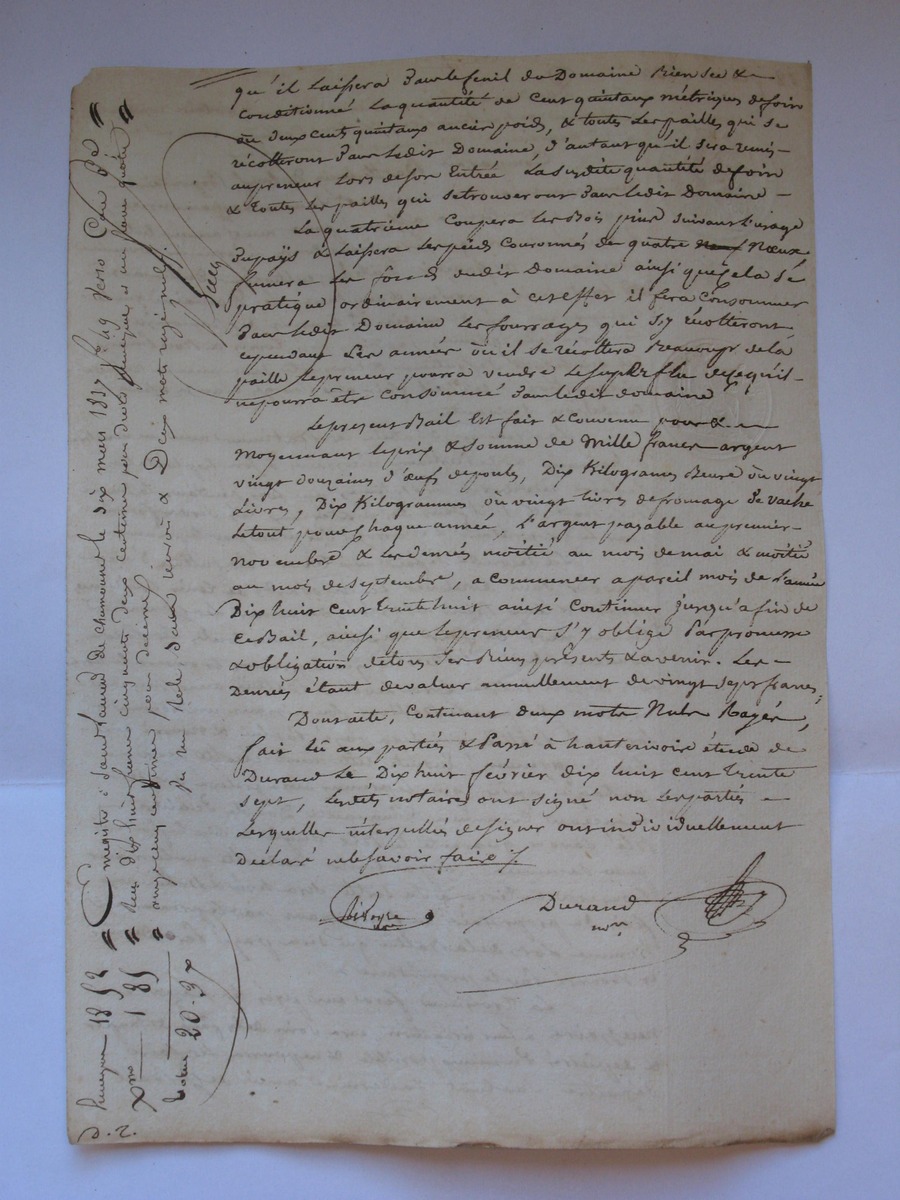 qu'il laissera dans le fenil du Domaine bien sec &
Conditionné la quantité de cent quintaux métriques de foin
ou deux cents quintaux ancien poids, & toutes les pailles qui se
récolteront dans ledit Domaine, d'autant qu'il sera remis
au preneur lors de son Entrée la susdite quantité de foin
& toutes les pailles qui se trouveront dans ledit Domaine
La quatrième Coupera les Bois suivant l'usage
du pays & laissera les pieds Couronnés de quatre Nœux
fumera les fonds dudit Domaine ainsi que cela se
pratique ordinairement à cet effet il fera Consommer
dans ledit Domaine les fourrages qui s'y récolteront
cependant les année où il se récoltera Beaucoup de la
paille le preneur pourra vendre le superflu de ce qu'il
ne pourra être consommé dans ledit domaine
Le present Bail est fait & convenu pour &
Moyennant le prix & somme de Mille francs argent
vingt douzaines d'œufs de poule, Dix Kilogrames Beure ou vingt
Livres, Dix Kilogrammes ou vingt livres de fromage de vache
le tout pour chaque année, l'argent payable au premier
novembre & les denrés moitié au mois de mai & moitié
au mois de septembre, a commencer a pareil mois de l'année
Dix huit cent trente huit ainsi Continuer jusqu'a fin de
ce Bail, ainsi que le preneur s'y oblige Par promesse
& obligation de tous ses Biens présents & avenir. Les
Denrés étant devaluer annuellement de vingt sept francs
Dont acte, Contenant deux mots Nuls Rayés,
fait lû aux parties & Passé à hauterivoire étude de
Durand le Dix huit février dix huit cent trente
sept, lesdits notaires ont signé non les parties
Lesquelles interpellés de signer ont individuellement
Déclaré ne le savoir faire
Durand
nore
Enregistré à Saint Laurent de chamousset le dix mars 1837 fo 49 verso Case
Reçu dix huit francs cinquante deux centimes pour droits
pour décime
Du un Role sans renvoi & Deux mots rayé nuls.
18 52
1 85
20.37
D. 2.